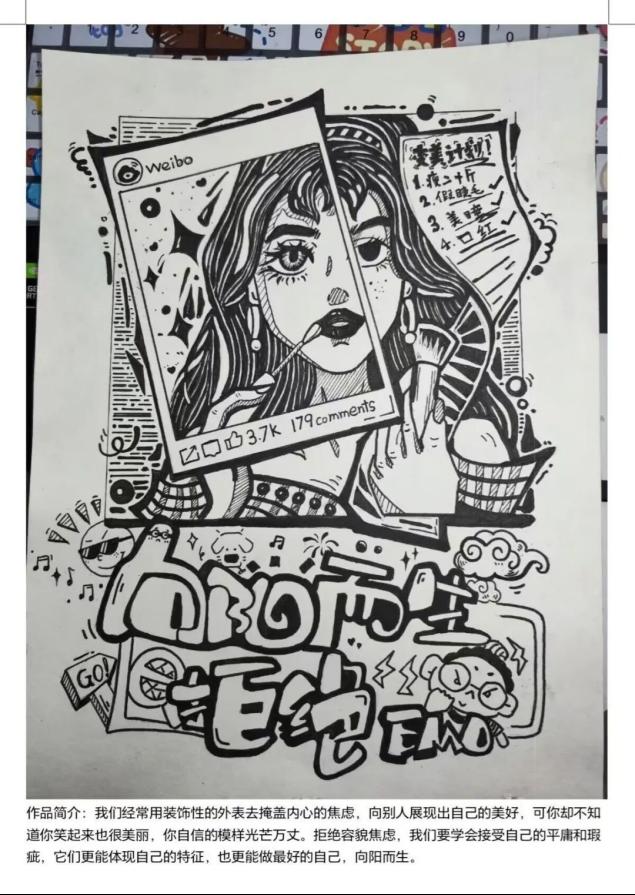 1 2 4 5 6 7 8 9 0
STORY
Weibo
变美计划!
1.瘦二十斤
2.假睫毛
3.美瞳
4.口红
3.7K 179 comments
向阳而生
GO!
拒绝 EMO
作品简介：我们经常用装饰性的外表去掩盖内心的焦虑，向别人展现出自己的美好，可你却不知
道你笑起来也很美丽，你自信的模样光芒万丈。拒绝容貌焦虑，我们要学会接受自己的平庸和瑕
疵，它们更能体现自己的特征，也更能做最好的自己，向阳而生。